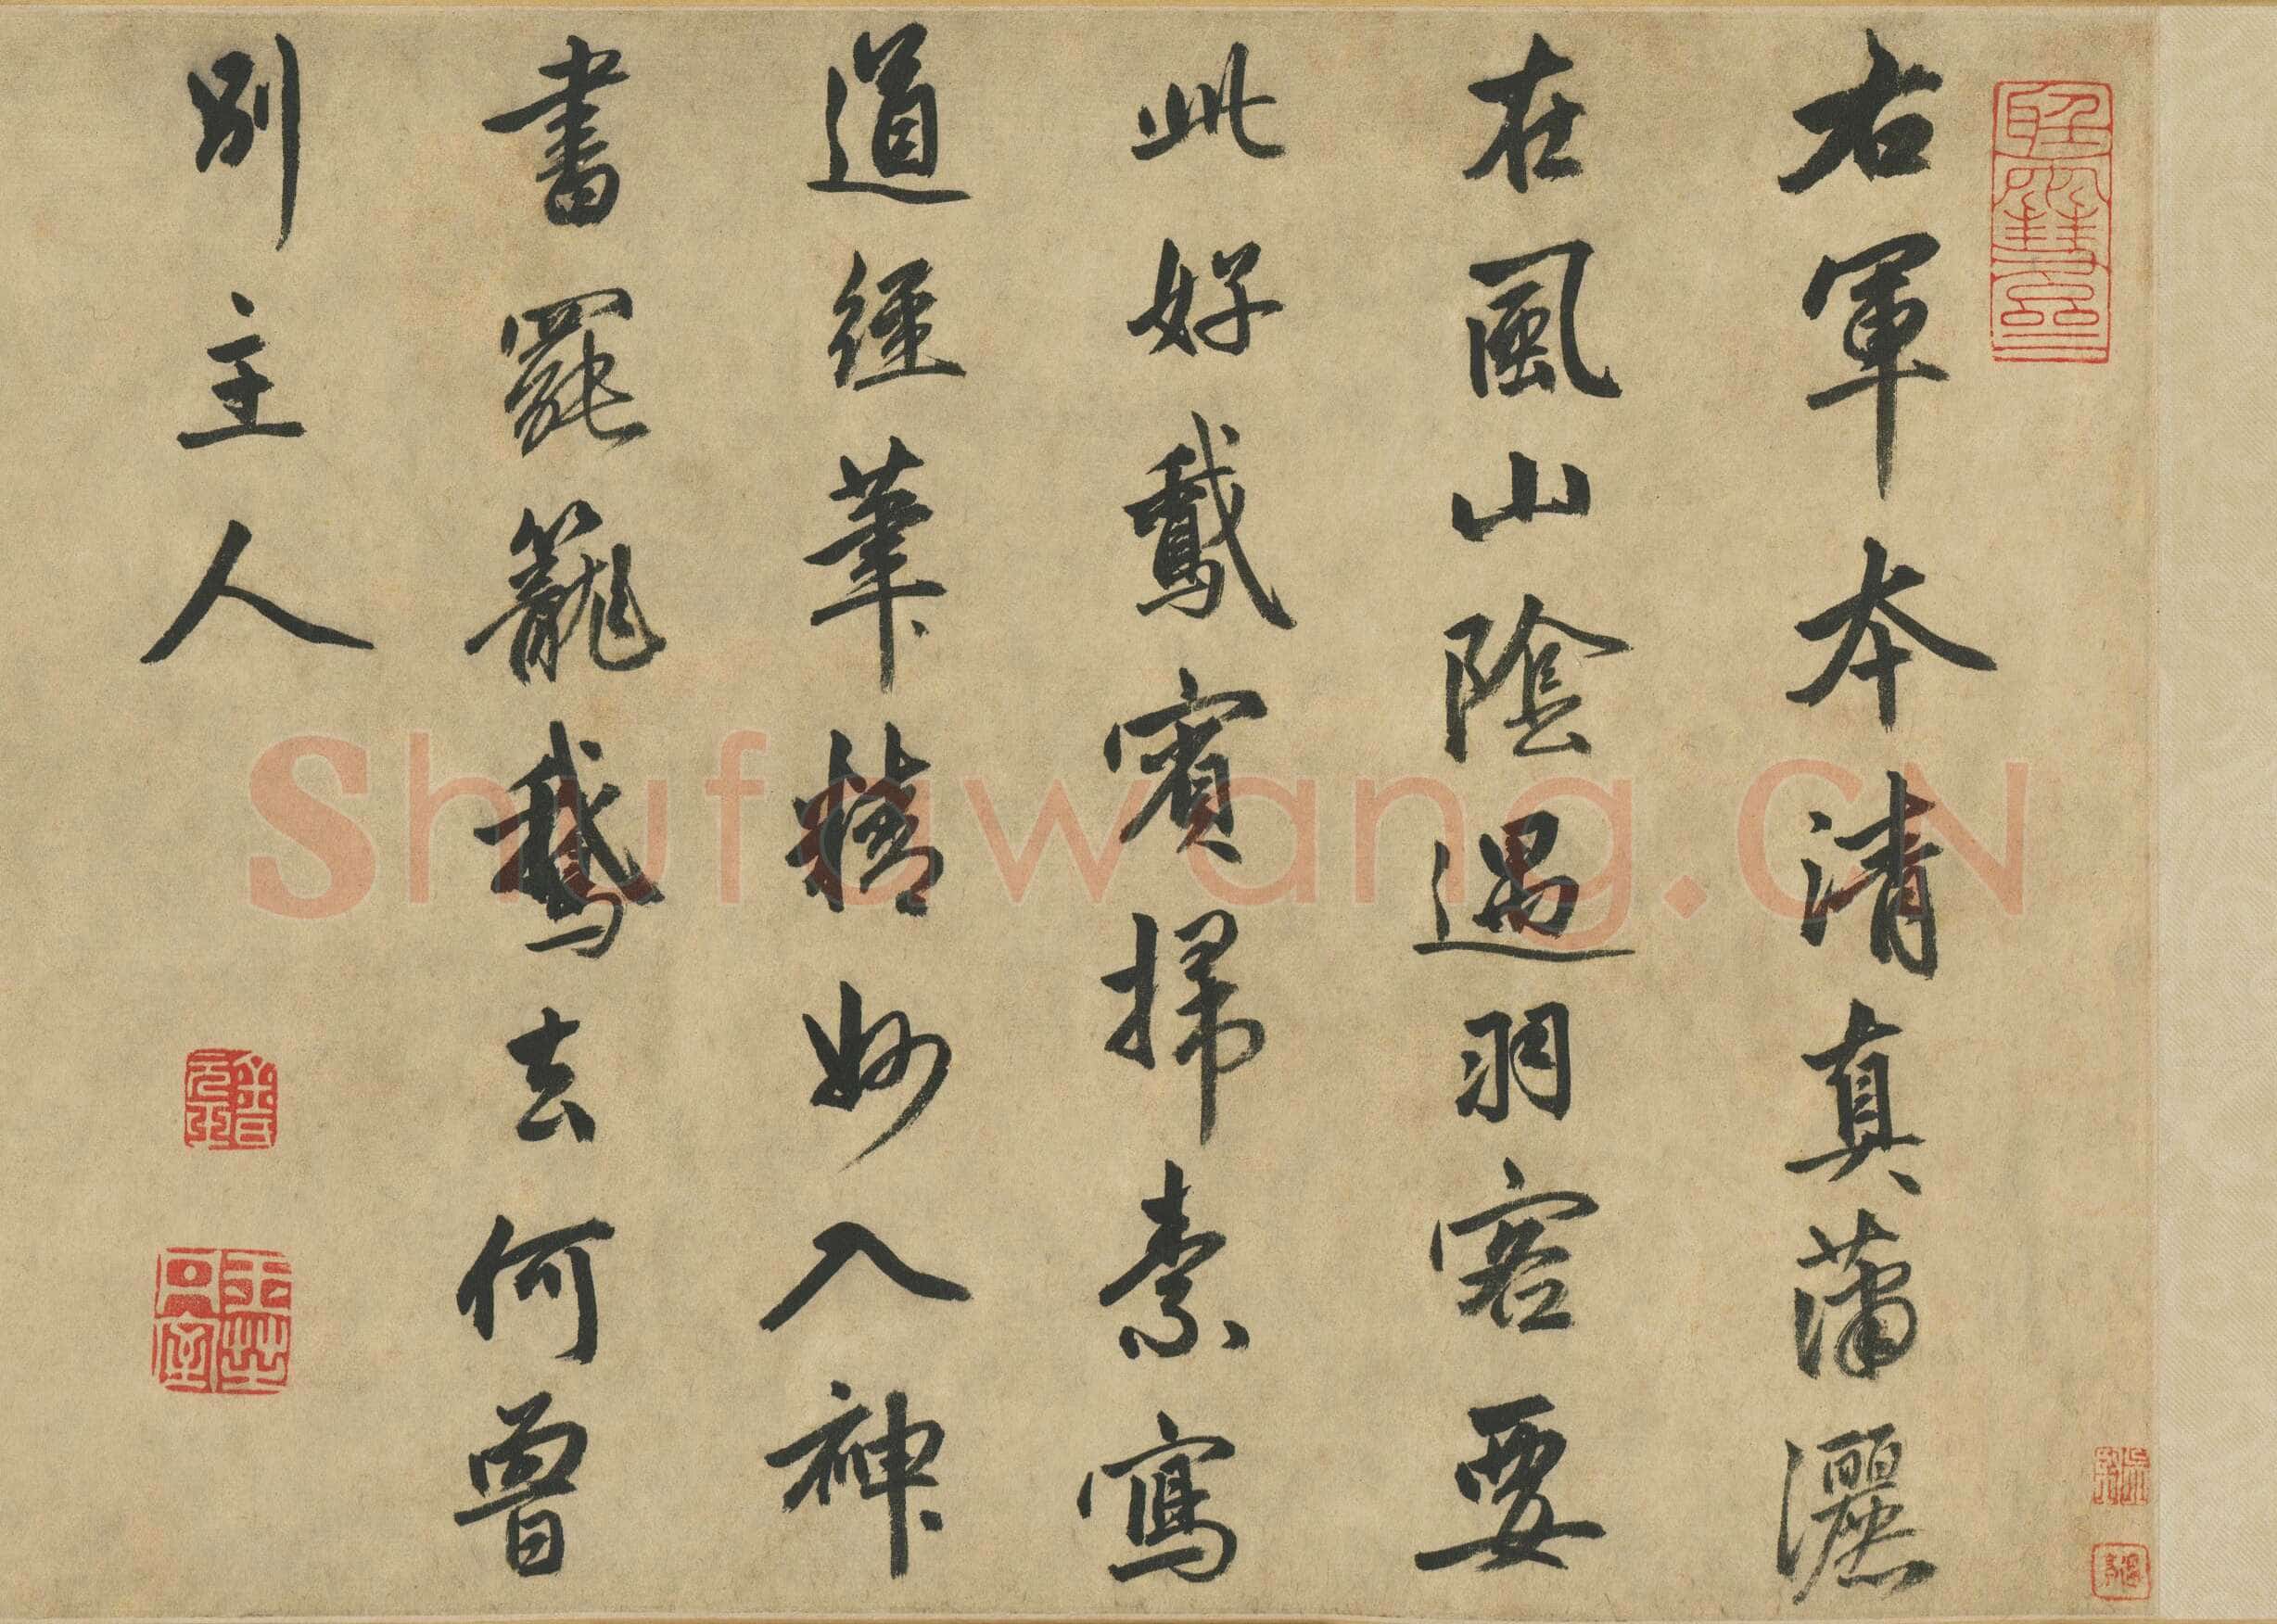 右軍本清真蒲灑
在風山陰遇羽客要
此好鵞賓掃素寫
道經筆精妙入神
書罷籠鵞去何曾
別主人
Shufawang.CN